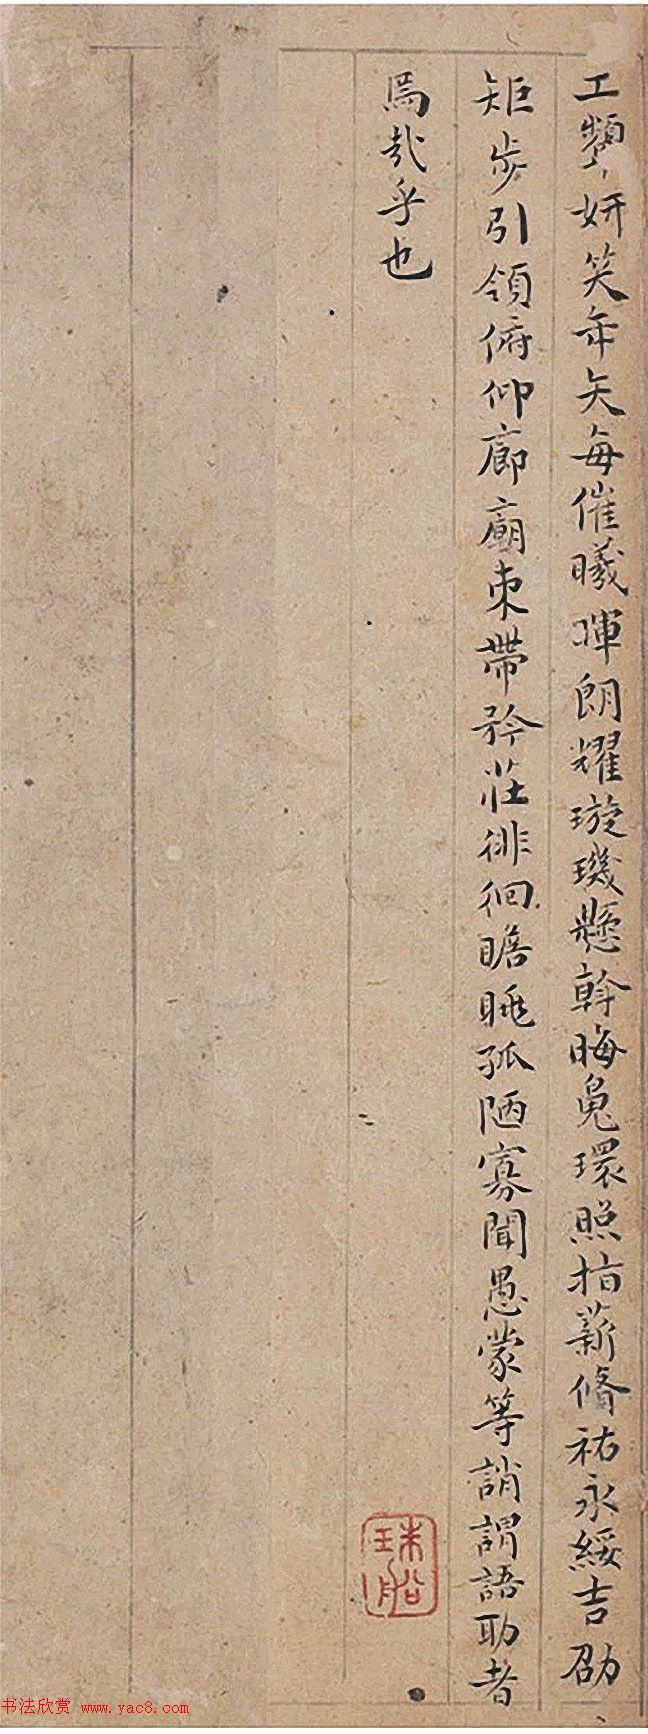 工顰妍笑年矢每催曦暉朗耀璇璣懸斡晦魄環照指薪脩祜永綏吉劭
矩步引領俯仰廊廟束帶矜莊徘徊瞻眺孤陋寡聞愚蒙等誚謂語助者
焉哉乎也
书法欣赏 www.yac8.com